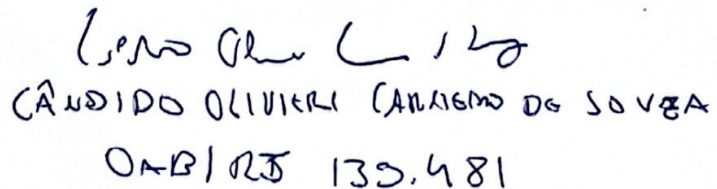 CÂNDIDO OLIVIERI CARNEIRO DE SOUZA
OAB/RJ 139.481